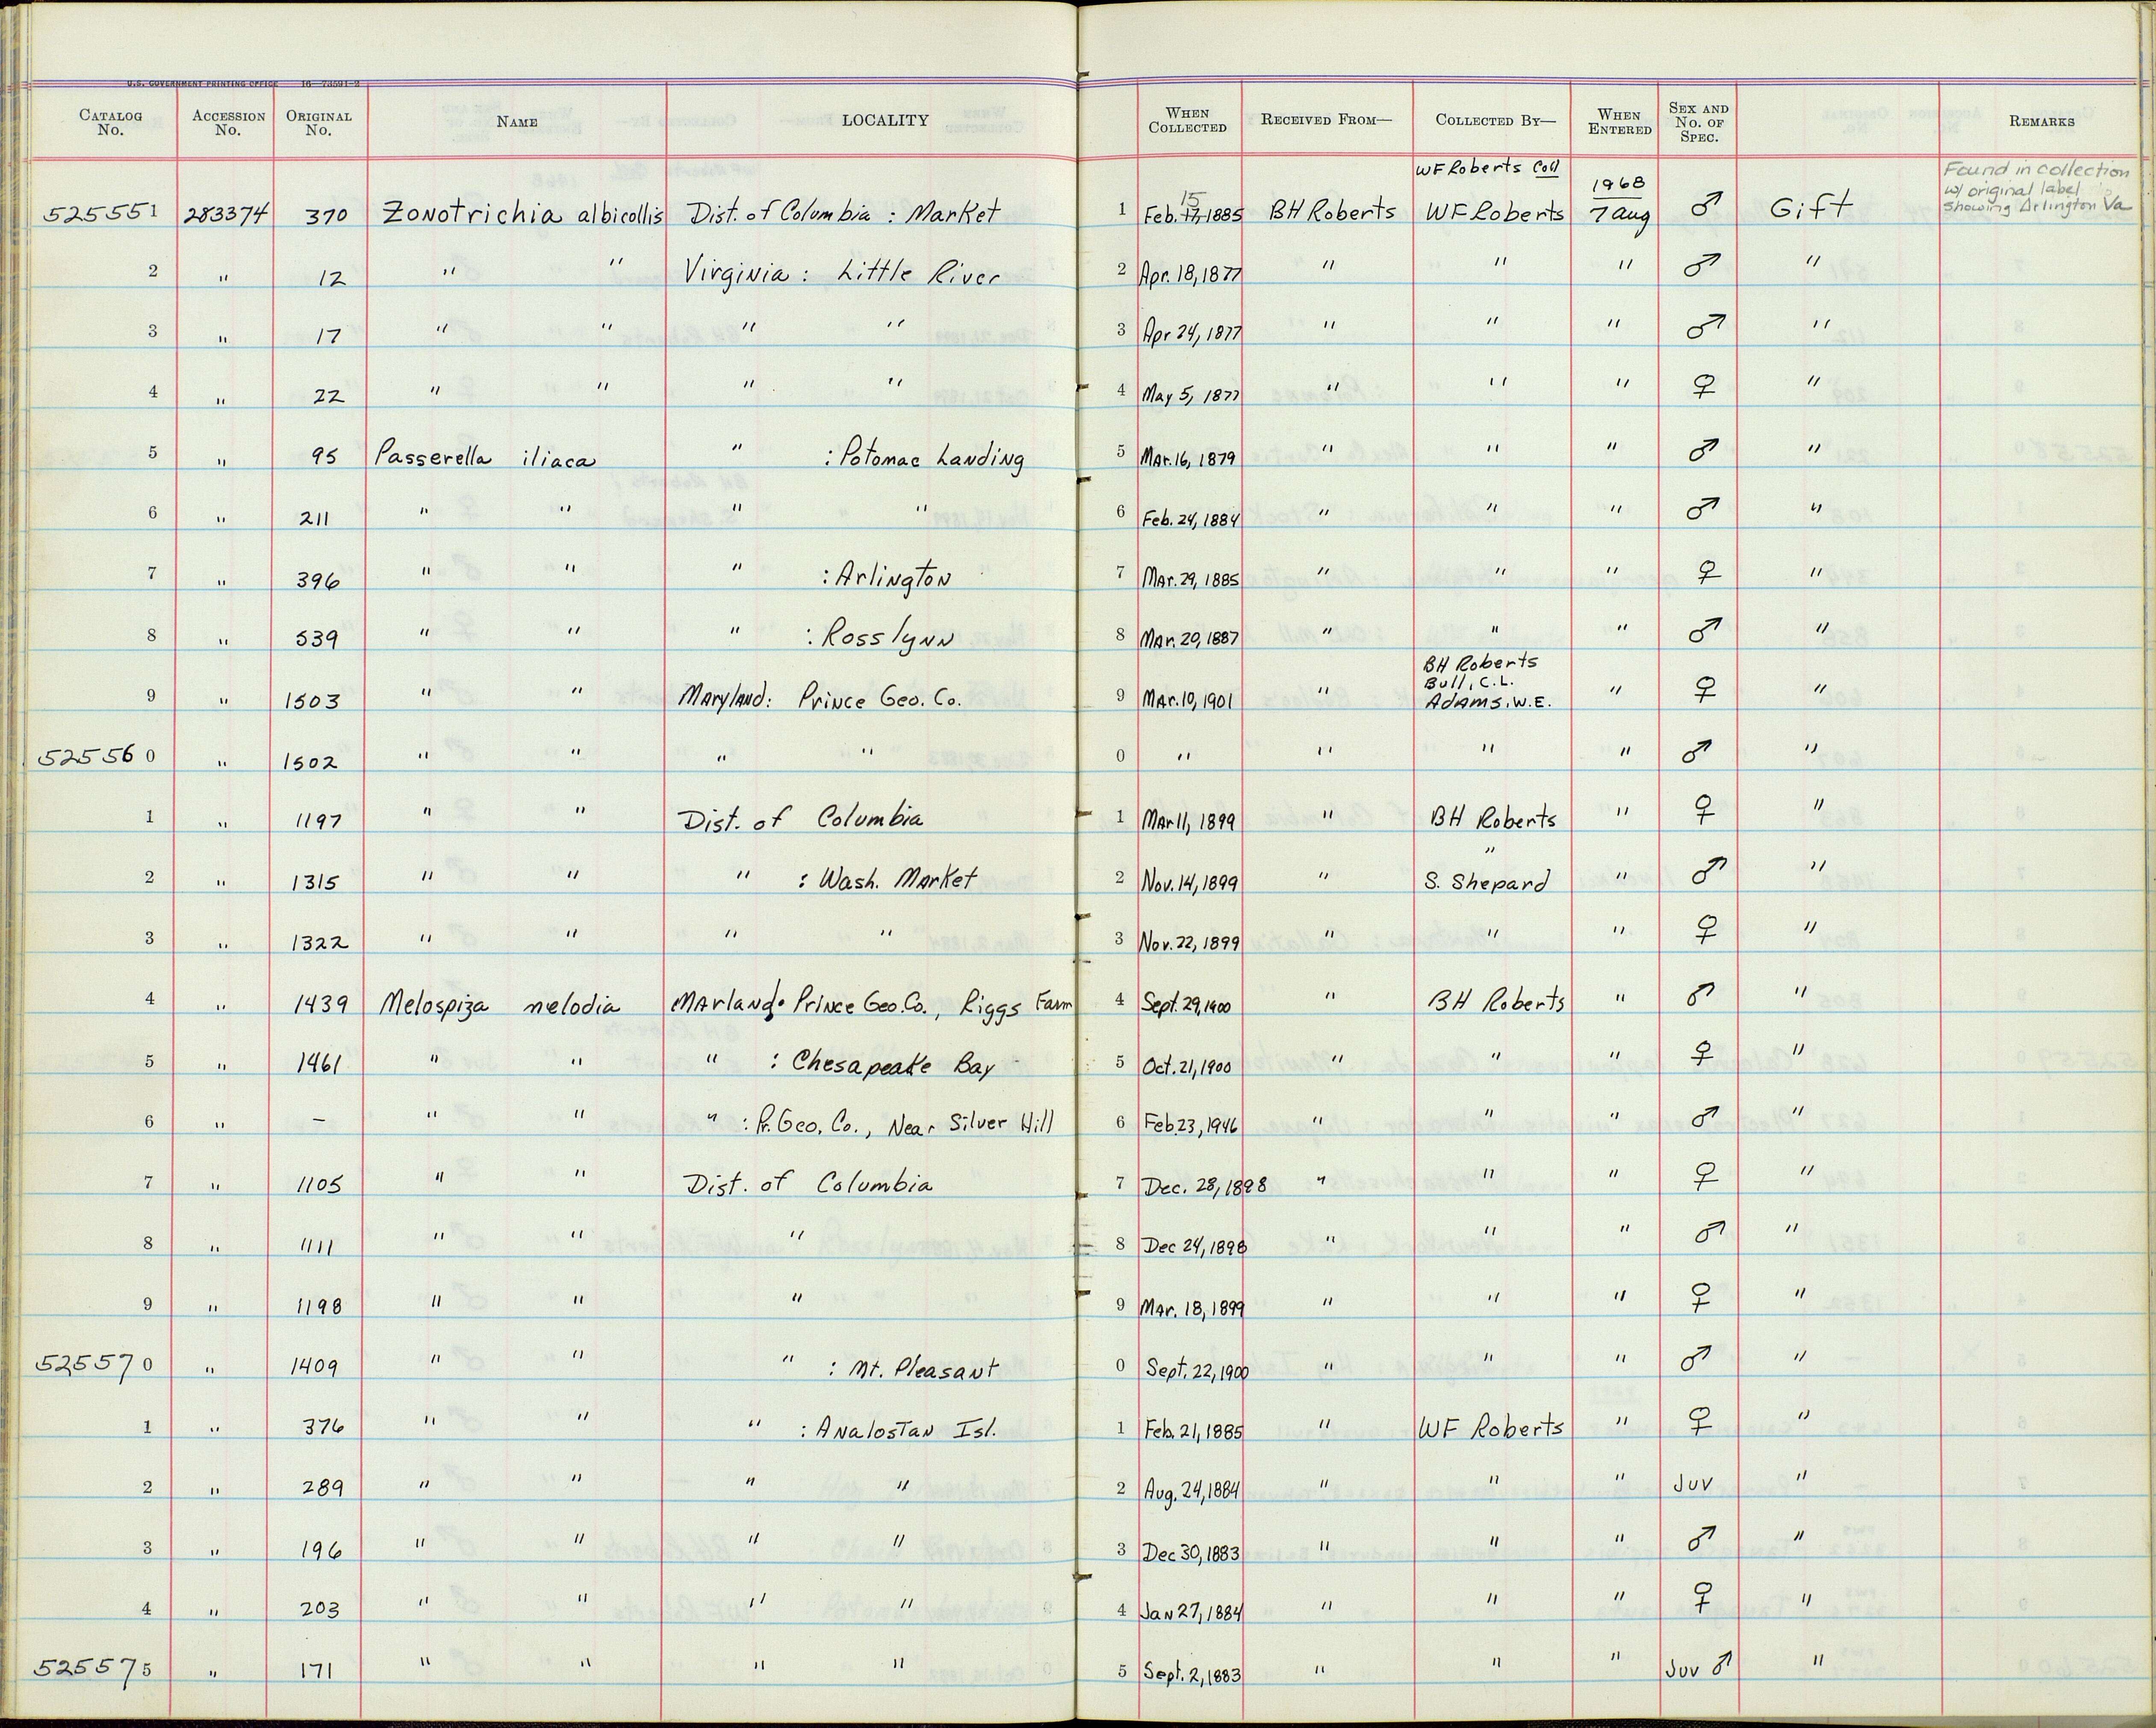 U.S. GOVERNMENT PRINTING OFFICE 16—73591-2
CATALOG No. ACCESSION No. ORIGINAL No. NAME LOCALITY WHEN COLLECTED RECEIVED FROM— COLLECTED BY— WHEN ENTERED SEX AND No. OF SPEC. REMARKS
WF Roberts Coll Found in collection
15 1968 w/ original label
525551 283374 370 Zonotrichia albicollis Dist. of Columbia : Market 1 Feb. 17, 1885 BH Roberts WF Roberts 7 Aug ♂ Gift showing Arlington Va
2 " 12 " " Virginia : Little River 2 Apr. 18, 1877 " " " ♂ "
3 " 17 " " " " 3 Apr 24, 1877 " " " ♂ "
4 " 22 " " " " 4 May 5, 1877 " " " ♀ "
5 " 95 Passerella iliaca " : Potomac Landing 5 Mar. 16, 1879 " " " ♂ "
6 " 211 " " " " 6 Feb. 24, 1884 " " " ♂ "
7 " 396 " " " : Arlington 7 Mar. 29, 1885 " " " ♀ "
8 " 539 " " " : Rosslynn 8 Mar. 20, 1887 " " " ♂ "
BH Roberts
Bull, C.L.
9 " 1503 " " Maryland: Prince Geo. Co. 9 Mar. 10, 1901 " Adams, W.E. " ♀ "
525560 " 1502 " " " " 0 " " " " ♂ "
1 " 1197 " " Dist. of Columbia 1 Mar 11, 1899 " BH Roberts " ♀ "
"
2 " 1315 " " " : Wash. Market 2 Nov. 14, 1899 " S. Shepard " ♂ "
3 " 1322 " " " " 3 Nov. 22, 1899 " " " ♀ "
4 " 1439 Melospiza melodia Marland: Prince Geo. Co., Riggs Farm 4 Sept. 29, 1900 " BH Roberts " ♂ "
5 " 1461 " " " : Chesapeake Bay 5 Oct. 21, 1900 " " " ♀ "
6 " – " " " : Pr. Geo. Co., Near Silver Hill 6 Feb 23, 1946 " " " ♂ "
7 " 1105 " " Dist. of Columbia 7 Dec. 28, 1898 " " " ♀ "
8 " 1111 " " " 8 Dec 24, 1898 " " " ♂ "
9 " 1198 " " " 9 Mar. 18, 1899 " " " ♀ "
525570 " 1409 " " " : Mt. Pleasant 0 Sept. 22, 1900 " " " ♂ "
1 " 376 " " " : Analostan Isl. 1 Feb. 21, 1885 " WF Roberts " ♀ "
2 " 289 " " " " 2 Aug. 24, 1884 " " " Juv "
3 " 196 " " " " 3 Dec 30, 1883 " " " ♂ "
4 " 203 " " " " 4 Jan 27, 1884 " " " ♀ "
525575 " 171 " " " " 5 Sept. 2, 1883 " " " Juv ♂ "